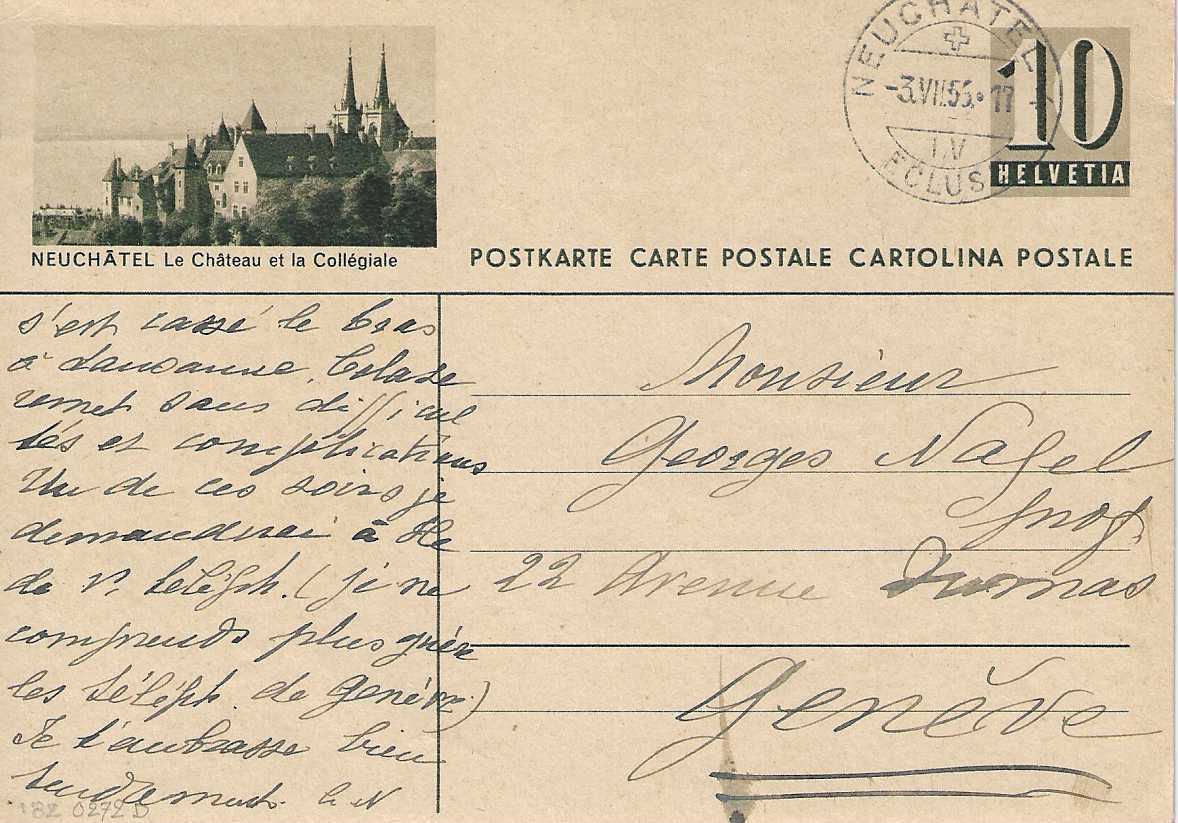 NEUCHATEL
-3.VII.55.•17
IV
ECLUS
10
HELVETIA
NEUCHÂTEL Le Château et la Collégiale
POSTKARTE CARTE POSTALE CARTOLINA POSTALE
s'est cassé le bras
à Lausanne.
remet sans difficul
tés et complications
Un de ces soirs je
demanderai à
de v. téléph. (je ne
comprends plus guère
les téléph. de Genève)
Je t'embrasse bien
tendrement.
Monsieur
Georges Nagel
prof.
22 Avenue Dumas
Genève
0272 D